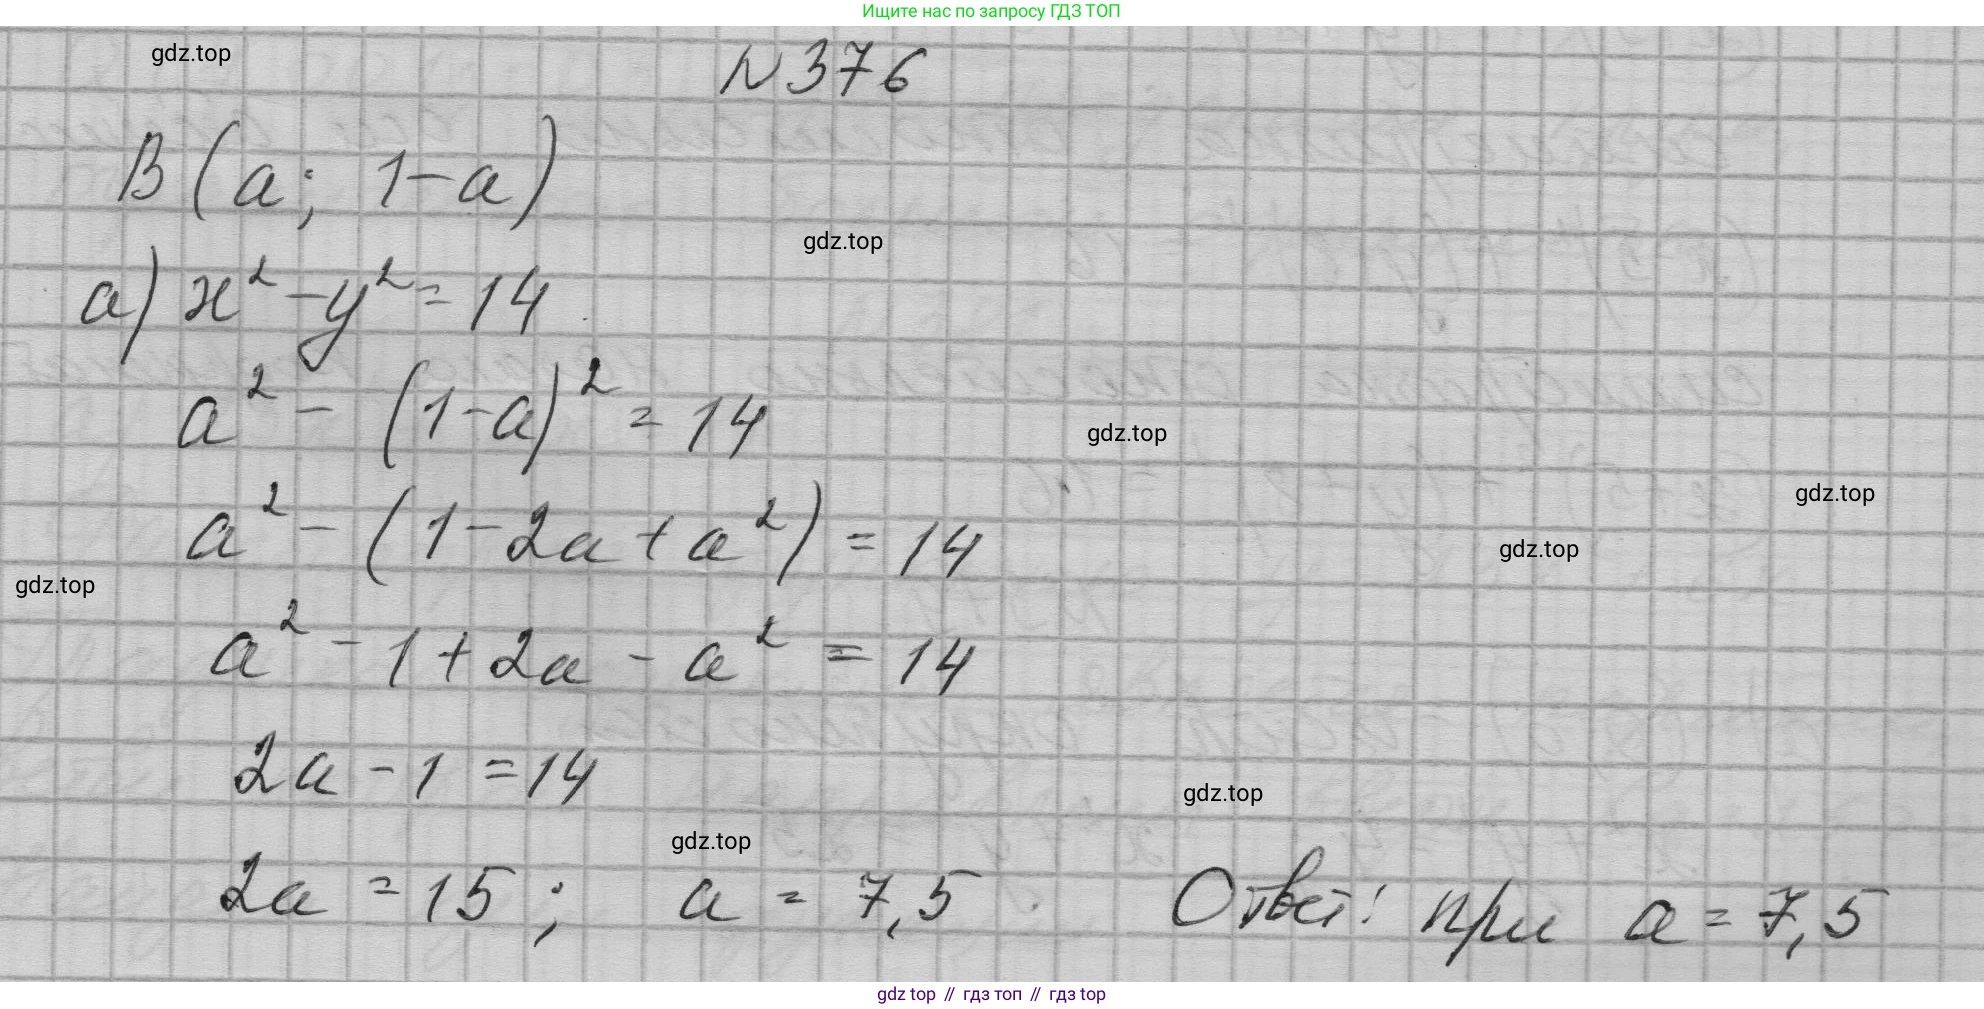 Ищите нас по запросу ГДЗ ТОП
gdz.top
N 376
B (a; 1-a)
gdz.top
a) x² - y² = 14
a² - (1-a)² = 14
gdz.top
gdz.top
a² - (1 - 2a + a²) = 14
gdz.top
gdz.top
a² - 1 + 2a - a² = 14
2a - 1 = 14
gdz.top
gdz.top
2a = 15; a = 7,5 Ответ: при a = 7,5
gdz top // гдз топ // гдз top